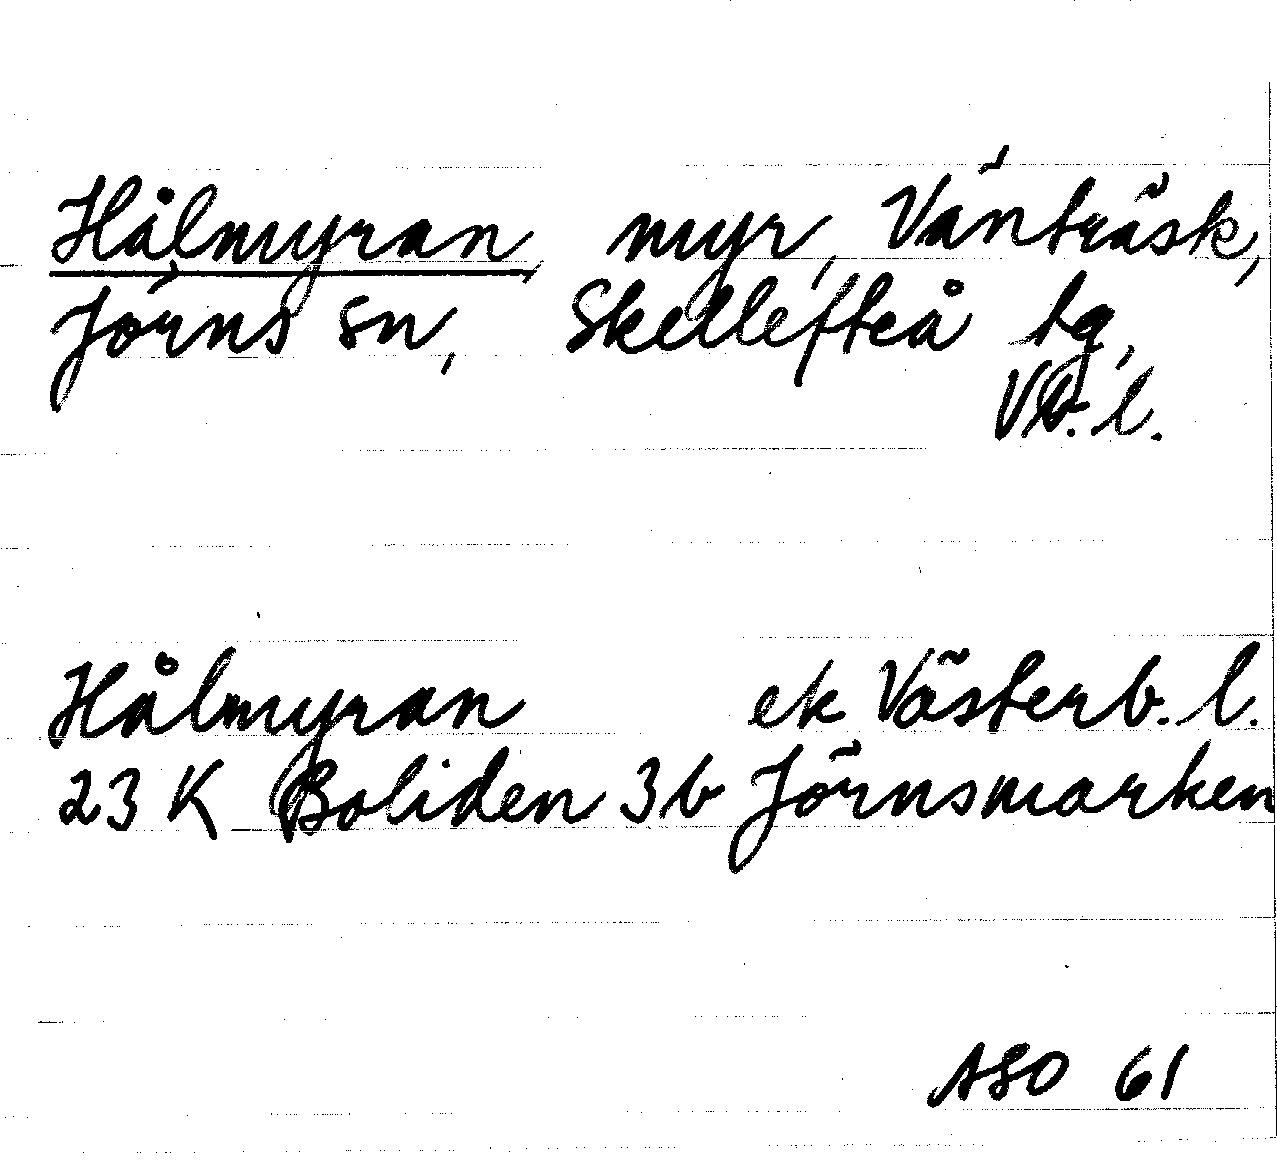 Hålmyran, myr, Vänträsk,
Jörns sn, Skellefteå tg,
Vb. l.
Hålmyran ek Västerb. l.
23 K Boliden 3b Jörnsmarken
ASO 61